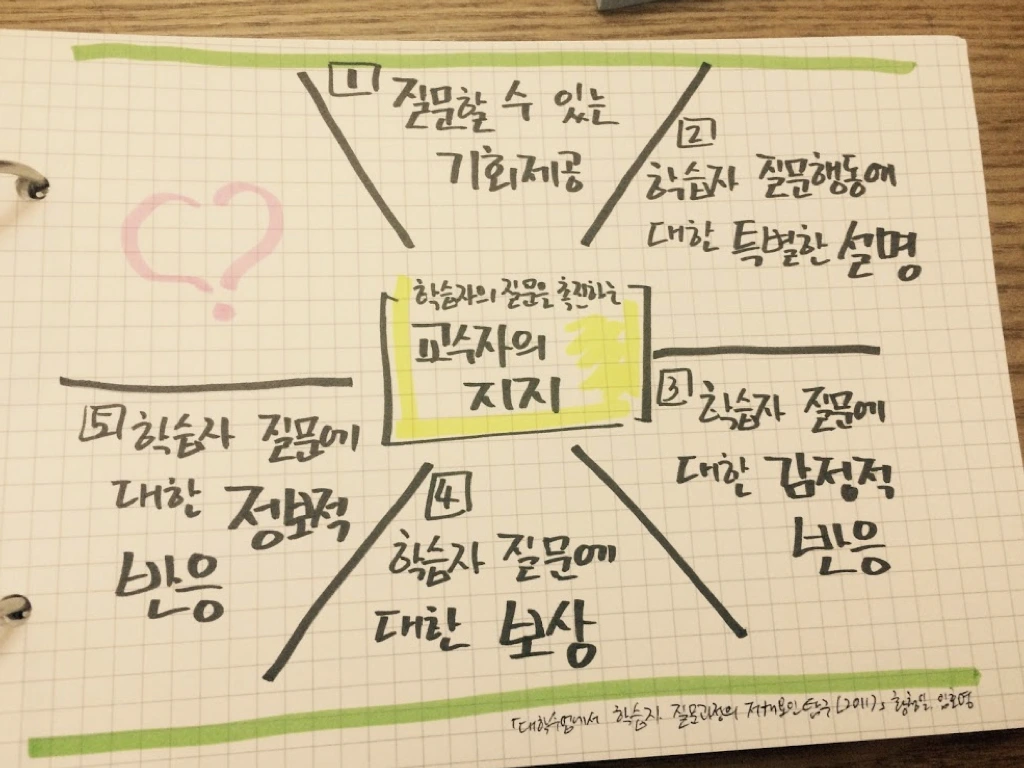 1
질문할 수 있는
기회제공
2
학습자 질문행동에
대한 특별한 설명
학습자의 질문을 촉진하는
교수자의
지지
3
학습자 질문에
대한 감정적
반응
4
학습자 질문에
대한 보상
5
학습자 질문에
대한 정보적
반응
「대학수업에서 학습자 질문과정의 저해요인 탐구 (2011)